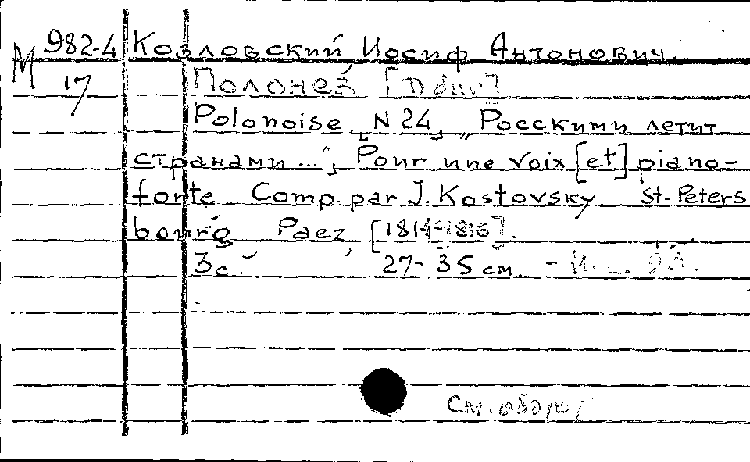 М 982-4 Козловский, Иосиф Антонович.
17 Полонез [D dur]
Polonoise [N 24] „Росскими летит
странами...", Pour une voix [et] piano-
forte Comp. par J. Kostovsky St-Peters
bourg Paez, [1814-1816].
3с 27-35 см. -
См. оборот